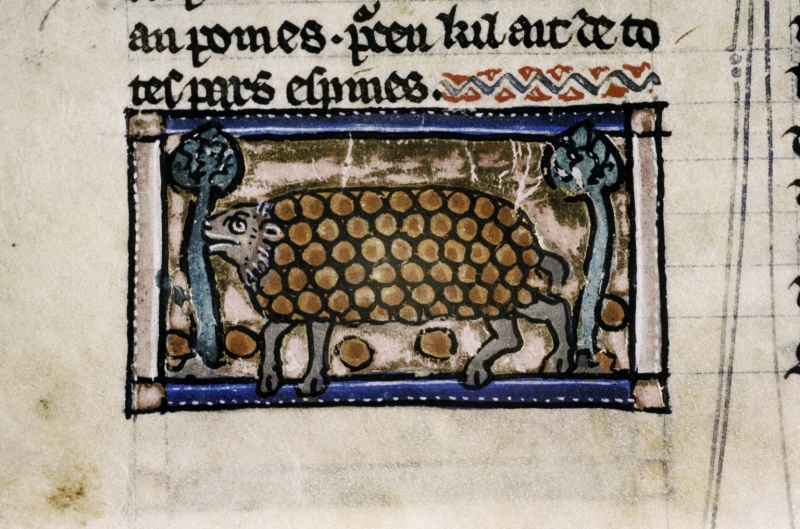 au pomes · pceu kil ait de to
tes pars espines ·